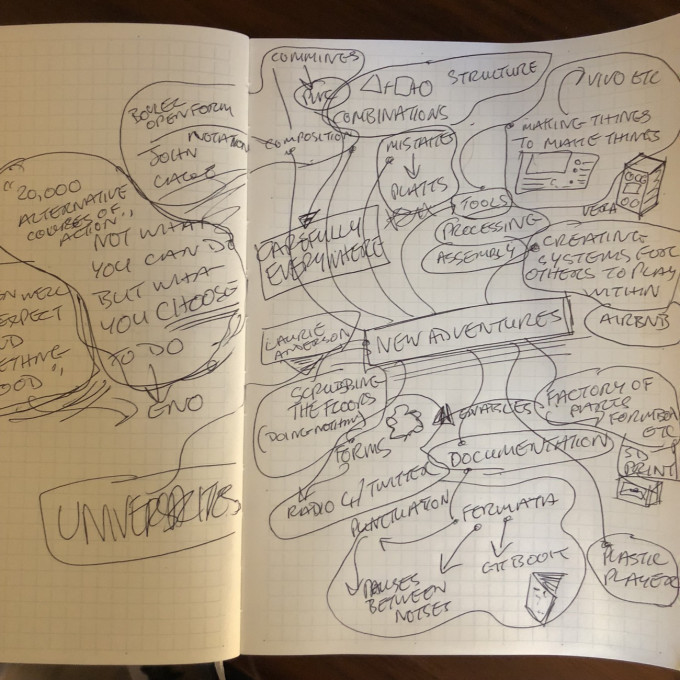 BOULEZ
OPEN FORM
NOTATION
JOHN
CAGE
"20,000
ALTERNATIVE
COURSES OF
ACTION",
NOT WHAT
YOU CAN DO
BUT WHAT
YOU CHOOSE
TO DO
ENO
EXPECT
GOOD",
UNIVERSITIES
COMMINGS
COMPOSITION
STRUCTURE
COMBINATIONS
MISTAKES
CAREFULLY
EVERYWHERE
VIVO ETC
MAKING THINGS
TO MAKE THINGS
TOOLS
PROCESSING
ASSEMBLY
CREATING
SYSTEMS FOR
OTHERS TO PLAY
WITHIN
AIRBNB
LAURIE
ANDERSON
NEW ADVENTURES
SCRUBBING
THE FLOORS
(DOING NOTHING)
FORMS
RADIO 4/TWITTER
ENABLES
DOCUMENTATION
FACTORY OF
PARTS
ETC
3D
PRINT
PUNCTUATION
FERMATA
GITBOOK
PAUSES
BETWEEN
NOTES
PLASTIC
PLAYER